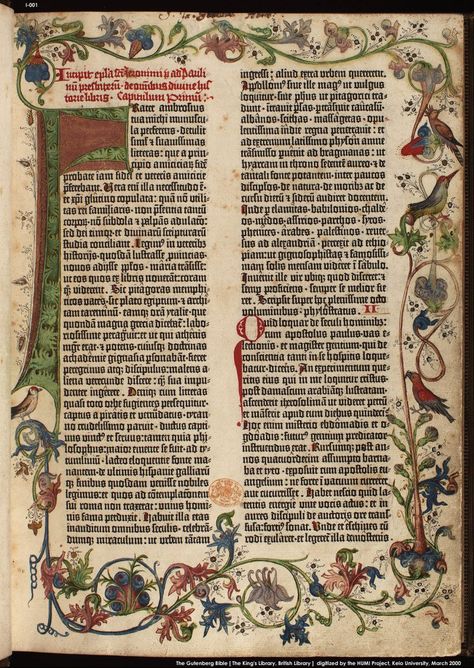 I-001
Incipit epła sancti iheronimi ad pauli
nū presbiterū de omnibus divine his
torie libris. Capitulum primū.
Frater ambrosius
tua michi munuscu
la perferens · detulit
simul et suavissimas
litteras · que a prin
cipio amiciciar̄ · fidē
probate iam fidei et veteris amicicie
preferebant. Vera enī illa necessitudo ē ·
et xp̄i glutino copulata · quam nō utili
tas rei familiaris · non presentia tantū
corporū · nō subdola et palpās adulatio ·
sed dei timor · et divinarū scripturarū
studia conciliant. Legimus in veteribus
historijs · quosdā lustrasse ṕvincias ·
novos adijsse pṗlos · maria trāsisse ·
ut eos quos ex libris noverāt: coram
q̨ viderēt. Sic pitagoras memphi
ticos vates · sic plato egiptum · et archi
tam tarentinū · eamq̨ oram ytalie · que
quondā magna grecia dicebat̄: labo
riosissime peragravit · ut qui athenis
mgr̄ erat · et potens · cuiusq̨ doctrinas
achademie gignasia ṕsonabāt · fieret
peregrinus atq̨ discipulus: malens a
liena verecunde discere: q̄ sua impu
denter ingerere. Deniq̨ cum litteras
quasi toto orbe fugientes persequit̄
captus a piratis et venūdatus · tyran
no crudelissimo paruit · ductus capti
vus vinctus et servus · tamen quia phi
losophus: maior emente se fuit · ad ty
tumlivium · lacteo eloquentie fonte ma
nantem · de ultimis hispanie galliarūq̨
finibus quosdam venisse nobiles
legimus: et quos ad cōtemplationem
sui roma non traxerat: unius homi
nis fama perduxit. Habuit illa etas
inauditum omnibus seculis · celebrā
dumq̨ miraculum: ut urbem tātam
ingressi: aliud extra urbem quererent.
Apollonius sive ille magus ut vulgus
loquitur · sive phūs ut pitagorici tra
dunt · ītravit persas · ptrāsivit caucasū ·
albanos · scithas · massagetas · opu
lentissima indie regna penetravit: et
ad extremum latissimo physon amne
trāsmisso puenit ad bragmanas: ut
hyarcam in throno sedentē aureo · et de
tantali fonte potantem · inter paucos
discipulos · de natura · de moribus ac de
cursu dierū et siderū audiret docentem.
Inde p elamitas · babilonios · chalde
os · medos · assirios · parthos · syros ·
phenices · arabes · palestinos · rever
sus ad alexandriā · perrexit ad ethio
piam: ut gignosophistas et famosissi
mam solis mensam videret ī sabulo.
Invenit ille vir ubiq̨ quod disceret: et
semp proficiens · semper se melior fie
ret. Scripsit super hoc plenissime octo
voluminibus · phylostratus. II
Quid loquar de seculi hominibus:
cum apostolus paulus · vas e
lectionis · et magister gentium · qui de
consciencia tanti in se hospitis loque
batur · dicens. An experimentum que
ritis eius qui in me loquitur cristus ·
post damascum arabiāq̨ lustratam ·
ascenderit iherosolimā ut videret petrū
et māserit apud eum diebus quindeci.
Hoc enim misterio ebdomadis et o
gdoadis: futurus gentium predicator
instruendus erat. Rursumq̨ post an
nos quatuordecim assumpto barna
ba et tyto · exposuit cum apostolis eu
angelium: ne forte ī vacuum curreret
aut cucurrisset. Habet nescio quid la
tentis energie vive vocis actus: et in
aures discipuli de auctoris ore trans
fusa: fortius sonat. Unde et eschines cū
rodi exularet · et legeret̄ illa demostenis
The Gutenberg Bible | The King's Library, British Library | digitized by the HUMI Project, Keio University, March 2000